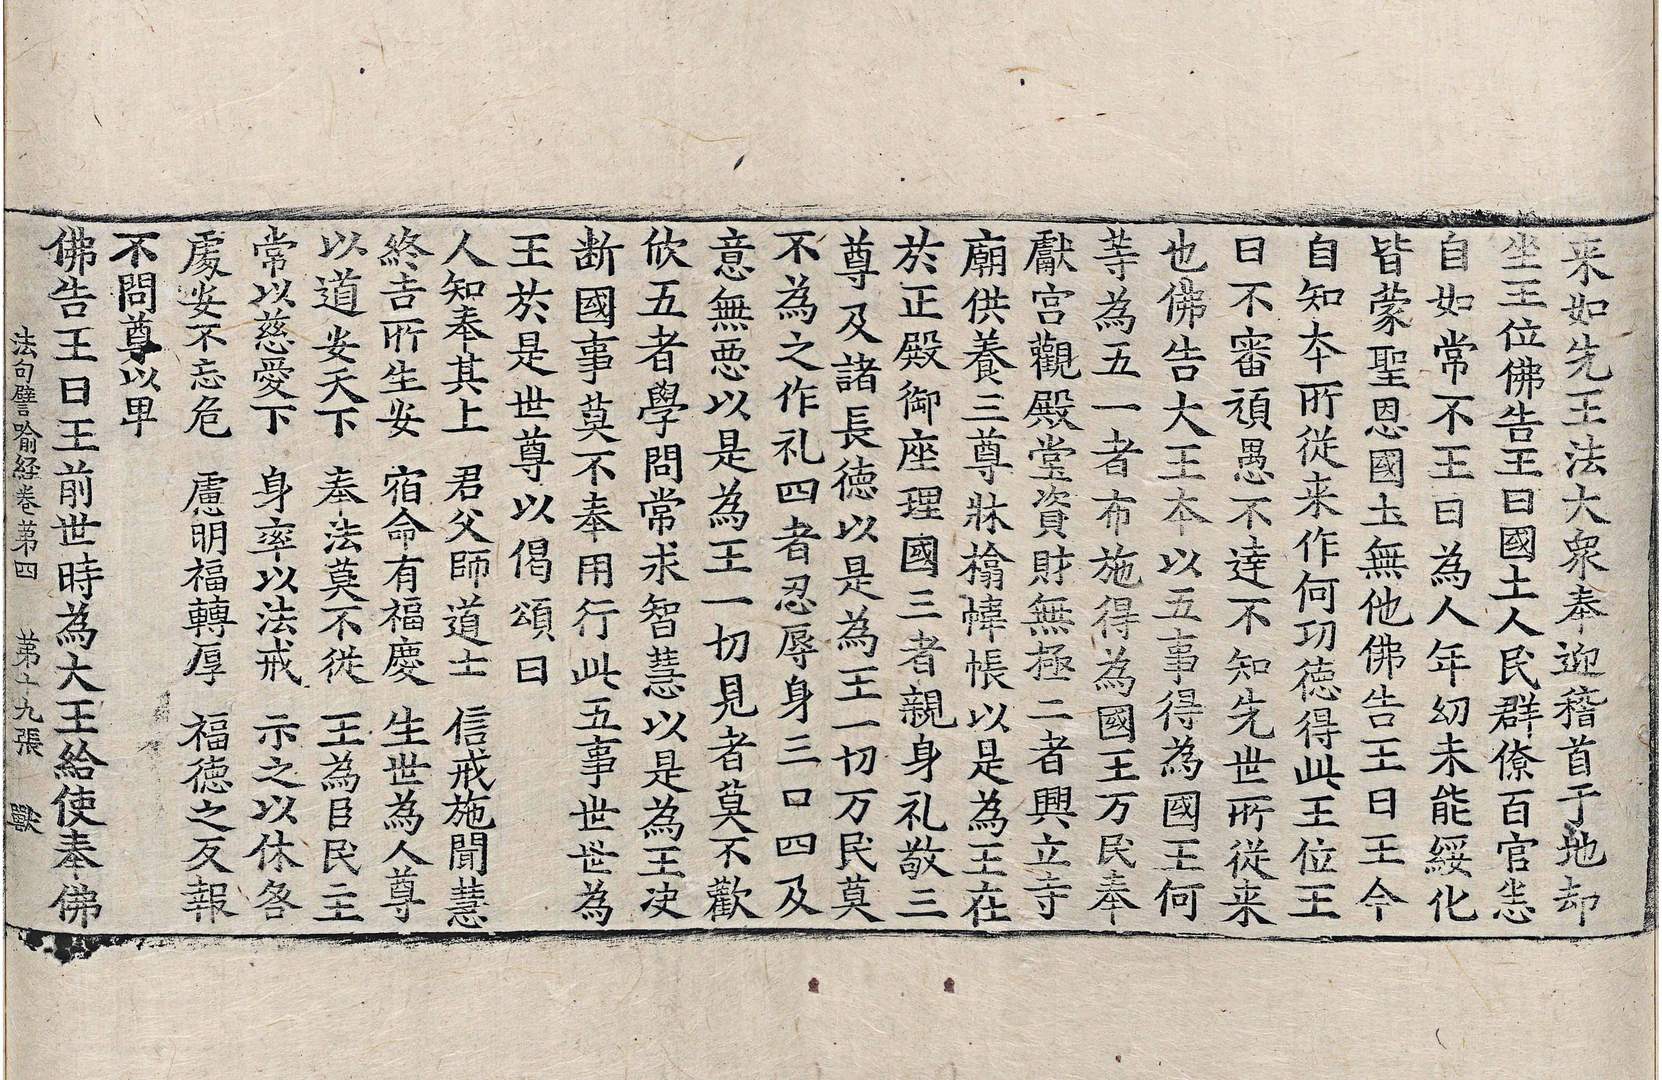 来如先王法大衆奉迎稽首于地却
坐王位佛告王曰國土人民群僚百官恙
自如常不王曰為人年幼未能綏化
皆蒙聖恩國土無他佛告王曰王今
自知本所従来作何功徳得此王位王
曰不審頑愚不達不知先世所従来
也佛告大王本以五事得為國王何
等為五一者布施得為國王万民奉
獻宮觀殿堂資財無極二者興立寺
廟供養三尊牀榻幃帳以是為王在
於正殿御座理國三者親身礼敬三
尊及諸長徳以是為王一切万民莫
不為之作礼四者忍辱身三口四及
意無悪以是為王一切見者莫不歡
欣五者學問常求智慧以是為王决
断國事莫不奉用行此五事世世為
王於是世尊以偈頌曰
人知奉其上　君父師道士　信戒施聞慧
終吉所生安　宿命有福慶　生世為人尊
以道安天下　奉法莫不従　王為臣民主
常以慈愛下　身率以法戒　示之以休咎
處安不忘危　慮明福轉厚　福徳之反報
不問尊以卑
佛告王曰王前世時為大王給使奉佛
法句譬喻経卷第四　第十九張　獸